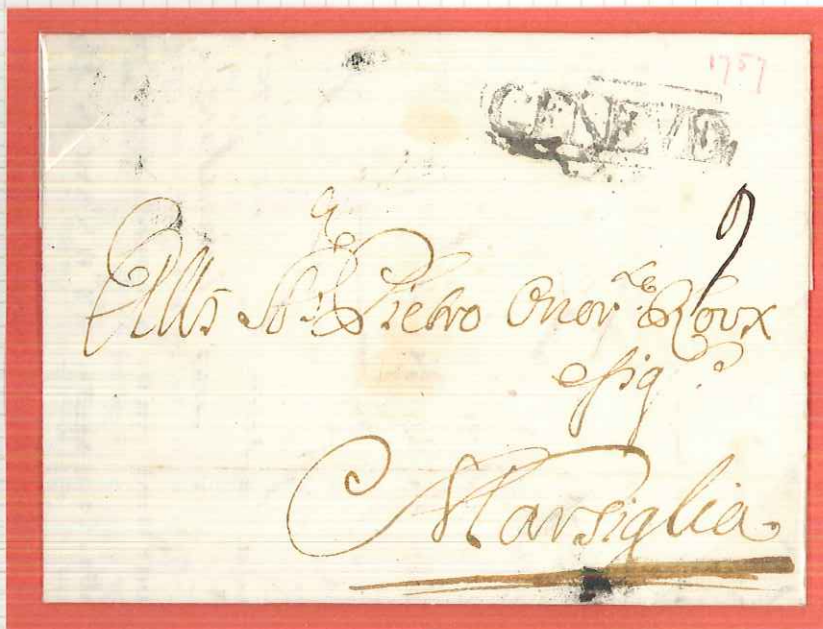 1757
GENEVE
9
Pietro Onor.le Roux
e fig.o
Marsiglia